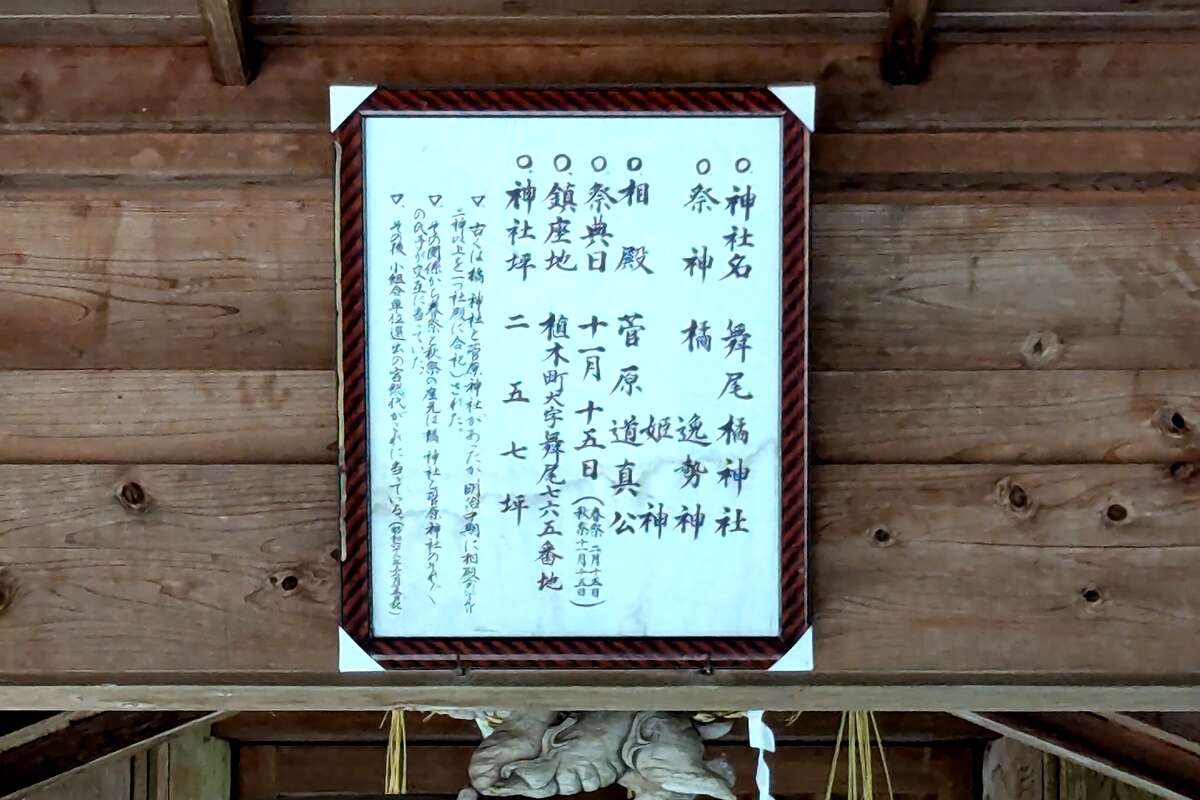 ○神社名 舞尾橘神社
○祭神 橘逸勢神
姫神
○相殿 菅原道真公
○祭典日 十一月十五日(春祭二月十五日
秋祭十一月十五日)
○鎮座地 植木町大字舞尾七六五番地
○神社坪 二五七坪
▽ 古くは橘神社と菅原神社があったが明治中期に相殿
二神以上を一つ社殿に合祀された。
▽ その関係から春祭と秋祭の座元は橘神社と菅原神社の
の氏子が交互に当っていた。
▽ その後小組合単位選出の宮総代がこれに当っている